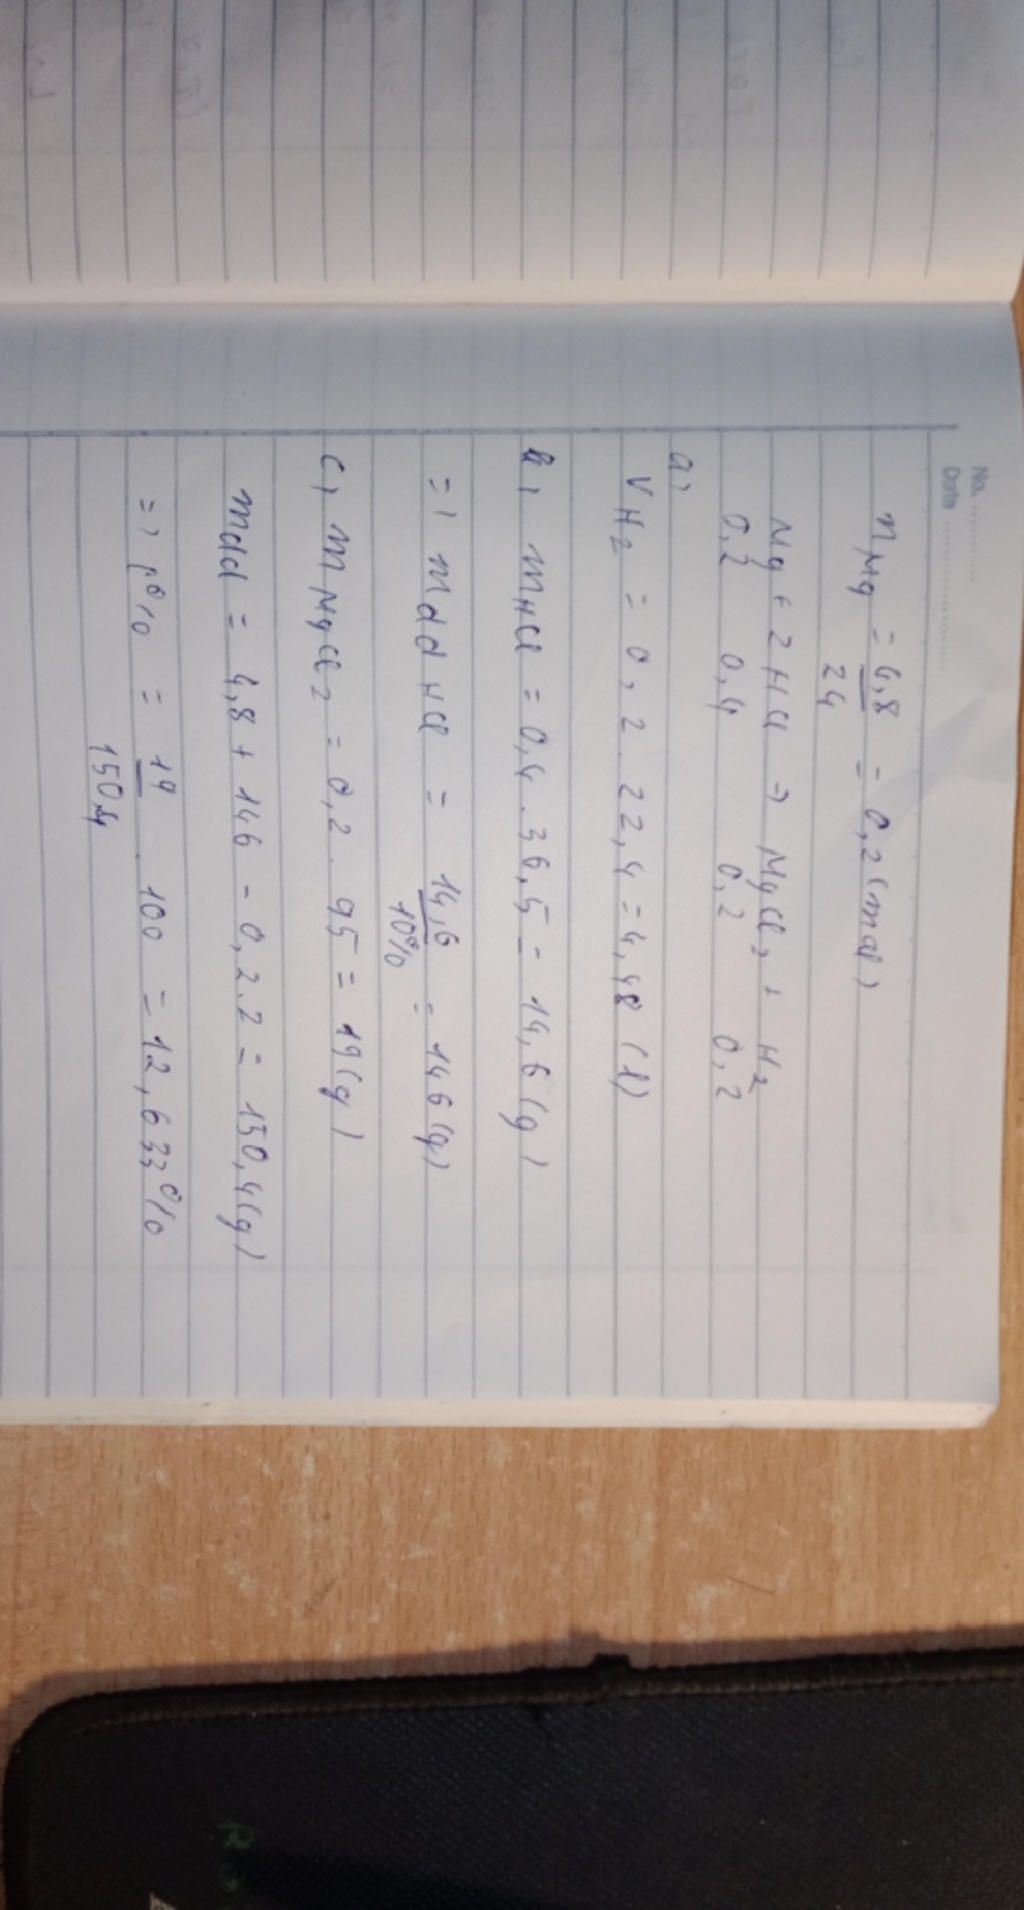 No. ............
Date ....................
nMg = 4,8 = 0,2 (mol)
24
Mg + 2HCl → MgCl2 + H2
0,2 0,4 0,2 0,2
a,
VH2 = 0,2 . 22,4 = 4,48 (l)
b, mHCl = 0,4 . 36,5 = 14,6 (g)
=) mdd HCl = 14,6 = 146 (g)
10%
c, mMgCl2 = 0,2 . 95 = 19 (g)
mdd = 4,8 + 146 - 0,2.2 = 150,4 (g)
=) C% = 19 . 100 = 12,633%
150,4